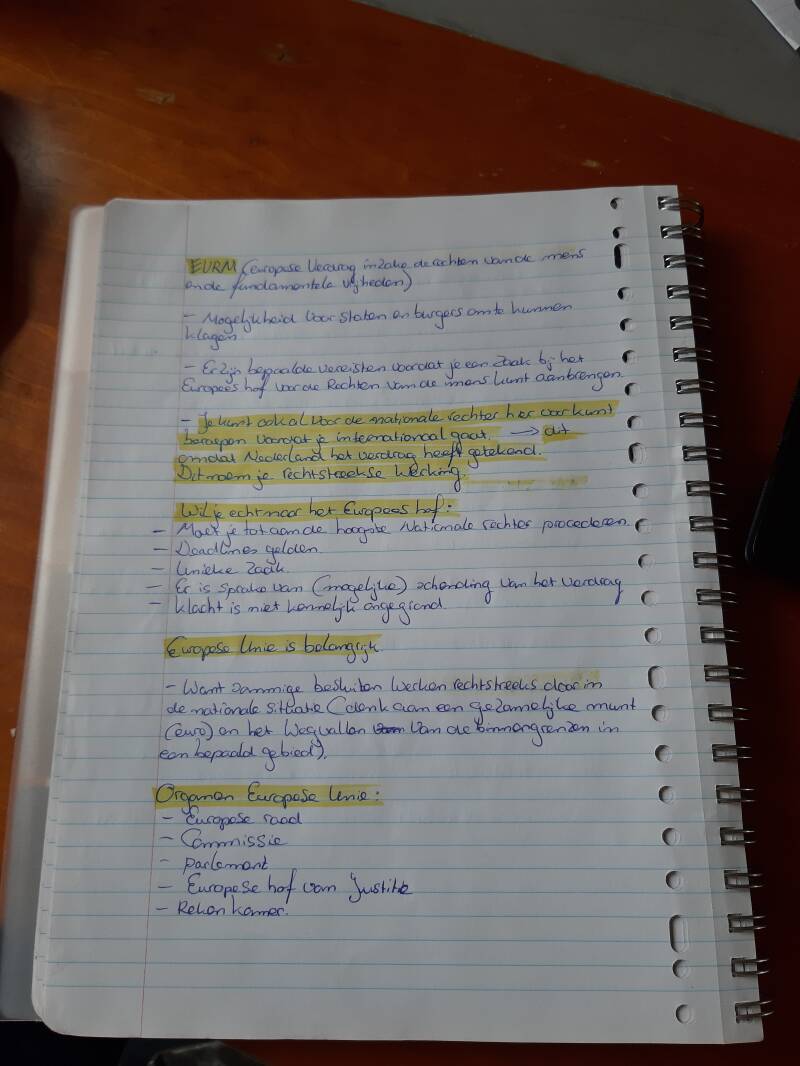 EURM (europese Verdrag inzake de rechten van de mens
en de fundamentele vrijheden)
- Mogelijkheid voor staten en burgers om te kunnen
klagen
- Er zijn bepaalde vereisten voordat je een zaak bij het
Europees hof voor de Rechten van de mens kunt aanbrengen.
- Je kunt ook al voor de nationale rechter hier voor kunt
beroepen voordat je internationaal gaat. → dit
omdat Nederland het verdrag heeft getekend.
Dit noem je rechtstreekse werking.
Wil je echt naar het Europees hof:
- Moet je tot aan de hoogste Nationale rechter procederen.
- Deadlines gelden.
- Unieke Zaak.
- Er is sprake van (mogelijke) schending van het verdrag
- klacht is niet kennelijk ongegrond.
Europese Unie is belangrijk.
- Want sommige besluiten werken rechtstreeks door in
de nationale situatie (denk aan een gezamelijke munt
(euro) en het wegvallen van de binnengrenzen in
een bepaald gebied).
Organen Europese Unie:
- Europese raad
- Commissie
- parlement
- Europese hof van Justitie
- Rekenkamer.